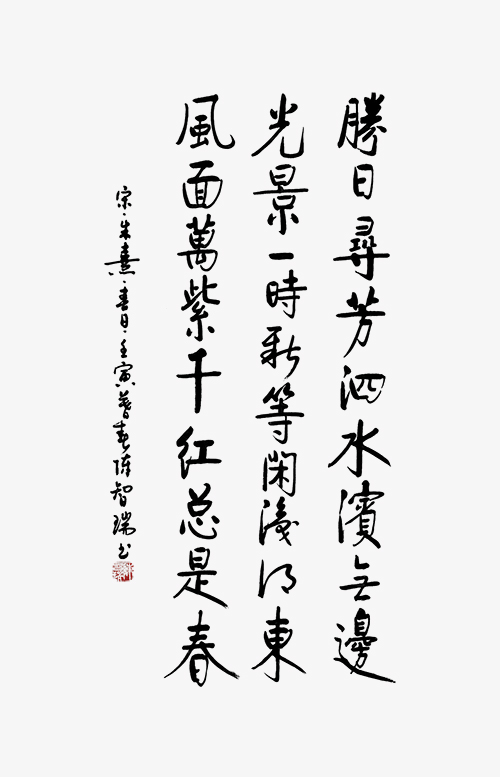 勝日尋芳泗水濱無邊
光景一時新等閑識得東
風面萬紫千紅总是春
宋·朱熹·春日·壬寅暮春陳智瑞书